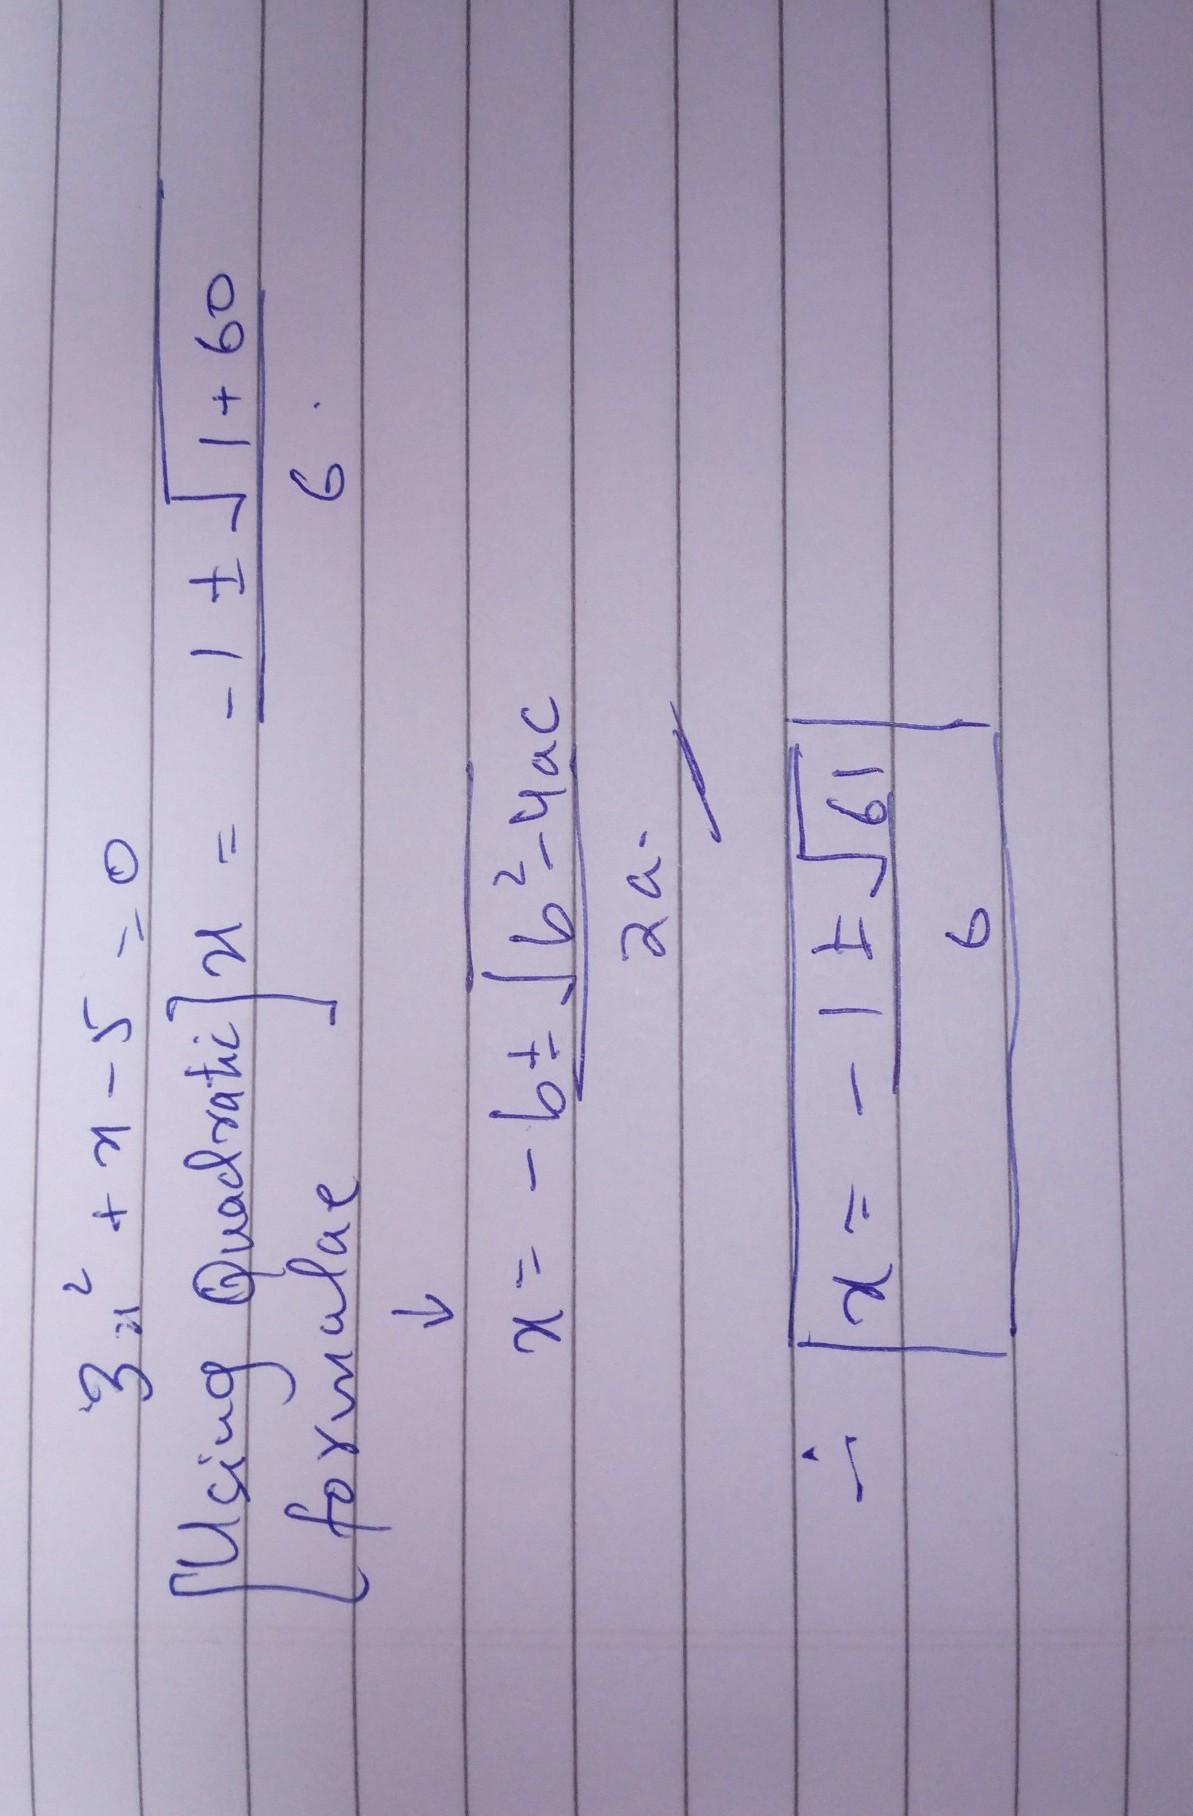 3x² + x - 5 = 0
[Using Quadratic formulae] x = -1 ± √1 + 60 / 6.
↓
x = -b ± √b² - 4ac / 2a.
x = -1 ± √61 / 6